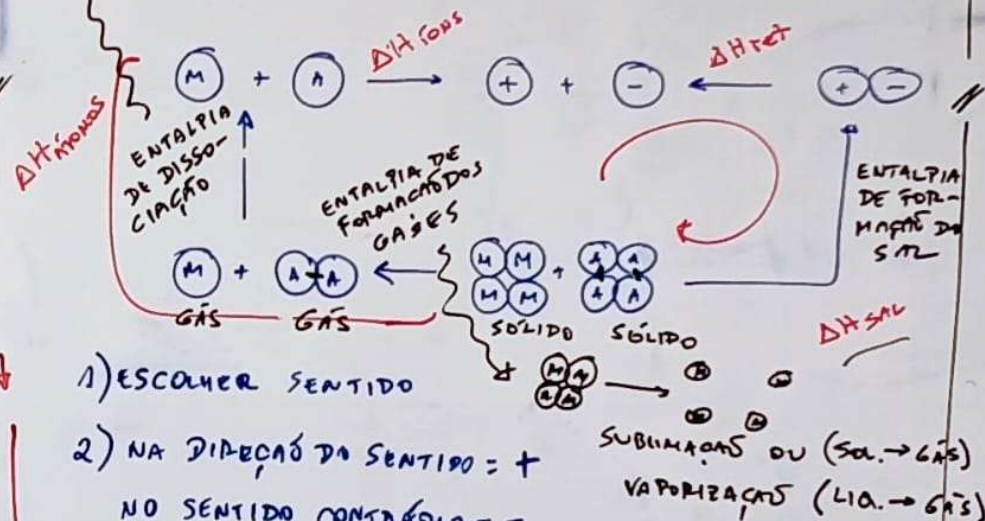 ΔH ÍONS
ΔH ret
M + A → + + - ← + -
ΔH ÁTOMOS
ENTALPIA
DE DISSO-
CIAÇÃO
ENTALPIA DE
FORMAÇÃO DOS
GASES
ENTALPIA
DE FOR-
MAÇÃO DO
SAL
M + A-A ← M M M M + A A A A
GÁS GÁS SÓLIDO SÓLIDO
ΔH SAL
1) ESCOLHER SENTIDO
2) NA DIREÇÃO DO SENTIDO = +
NO SENTIDO CONTRÁRIO = -
SUBLIMAÇÃO OU (SOL. → GÁS)
VAPORIZAÇÃO (LIQ. → GÁS)